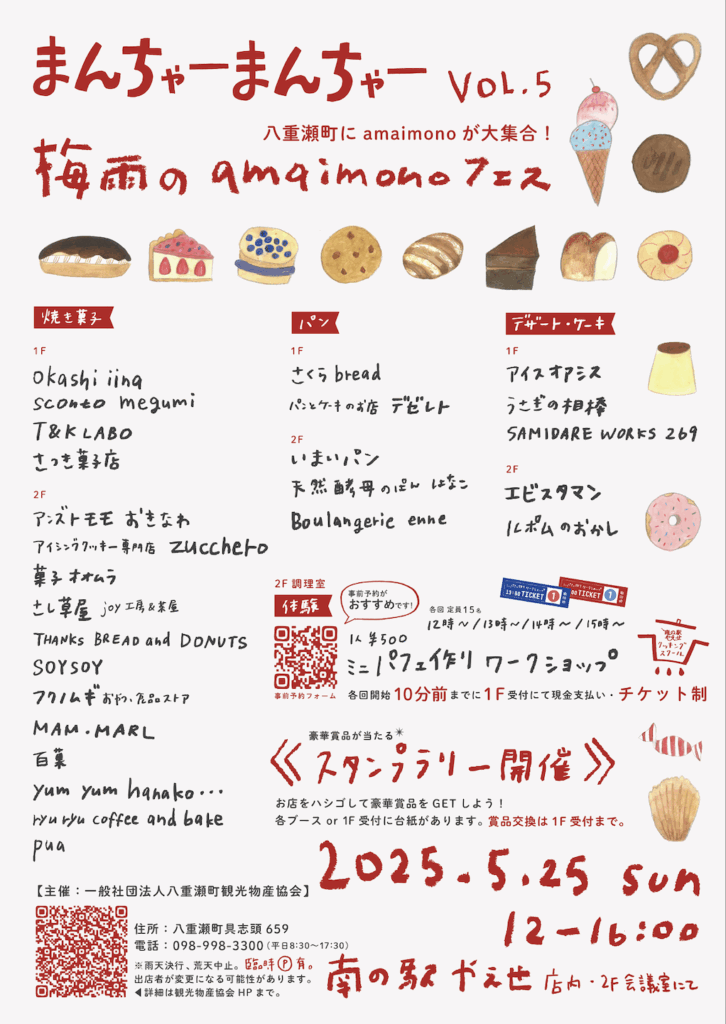 まんちゃーまんちゃー VOL.5
八重瀬町に amaimono が大集合！
梅雨の amaimonoフェス
焼き菓子
1F
okashi iina
sconto megumi
T&K LABO
さつき菓子店
2F
アンズトモモ おきなわ
アイシングクッキー専門店 zucchero
菓子オオムラ
さし草屋 joy工房&茶屋
THANKS BREAD and DONUTS
SOYSOY
フクノムギ おやつ、食品ストア
MAM・MARL
百菓
yum yum hanako…
ryuryu coffee and bake
pua
パン
1F
さくら bread
パンとケーキのお店 デゼレト
2F
いまいパン
天然酵母のぱん はなこ
Boulangerie enne
デザート・ケーキ
1F
アイスオアシス
うさぎの相棒
SAMIDARE WORKS 269
2F
エビスタマン
ルポムのおかし
2F 調理室
体験
事前予約が
おすすめです!
事前予約フォーム
TICKET 1
TICKET 1
各回 定員15名
1人 ¥500
12時〜/13時〜/14時〜/15時〜
ミニパフェ作り ワークショップ
各回開始 10分前までに1F受付にて現金支払い・チケット制
南の駅
やえせ
クッキング
スクール
豪華賞品が当たる*
《スタンプラリー開催》
お店をハシゴして豪華賞品を GET しよう！
各ブース or 1F 受付に台紙があります。賞品交換は 1F 受付まで。
2025.5.25 sun
12-16:00
南の駅やえせ 店内・2F会議室にて
【主催：一般社団法人八重瀬町観光物産協会】
住所：八重瀬町具志頭 659
電話：098-998-3300（平日8:30〜17:30）
※雨天決行、荒天中止。臨時Ⓟ有。
出店者が変更になる可能性があります。
◀詳細は観光物産協会 HP まで。